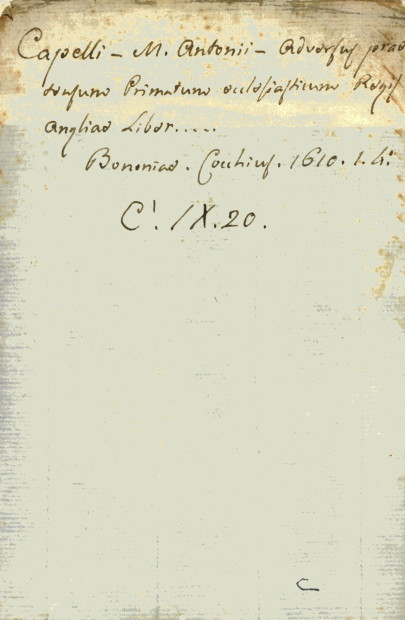 Capelli - M. Antonii - Adversus præ
tensum Primatum ecclesiasticum Regis
Angliae Liber.....
Bononiae. Cocchius. 1610. 1. 4.º
C! IX.20.
C